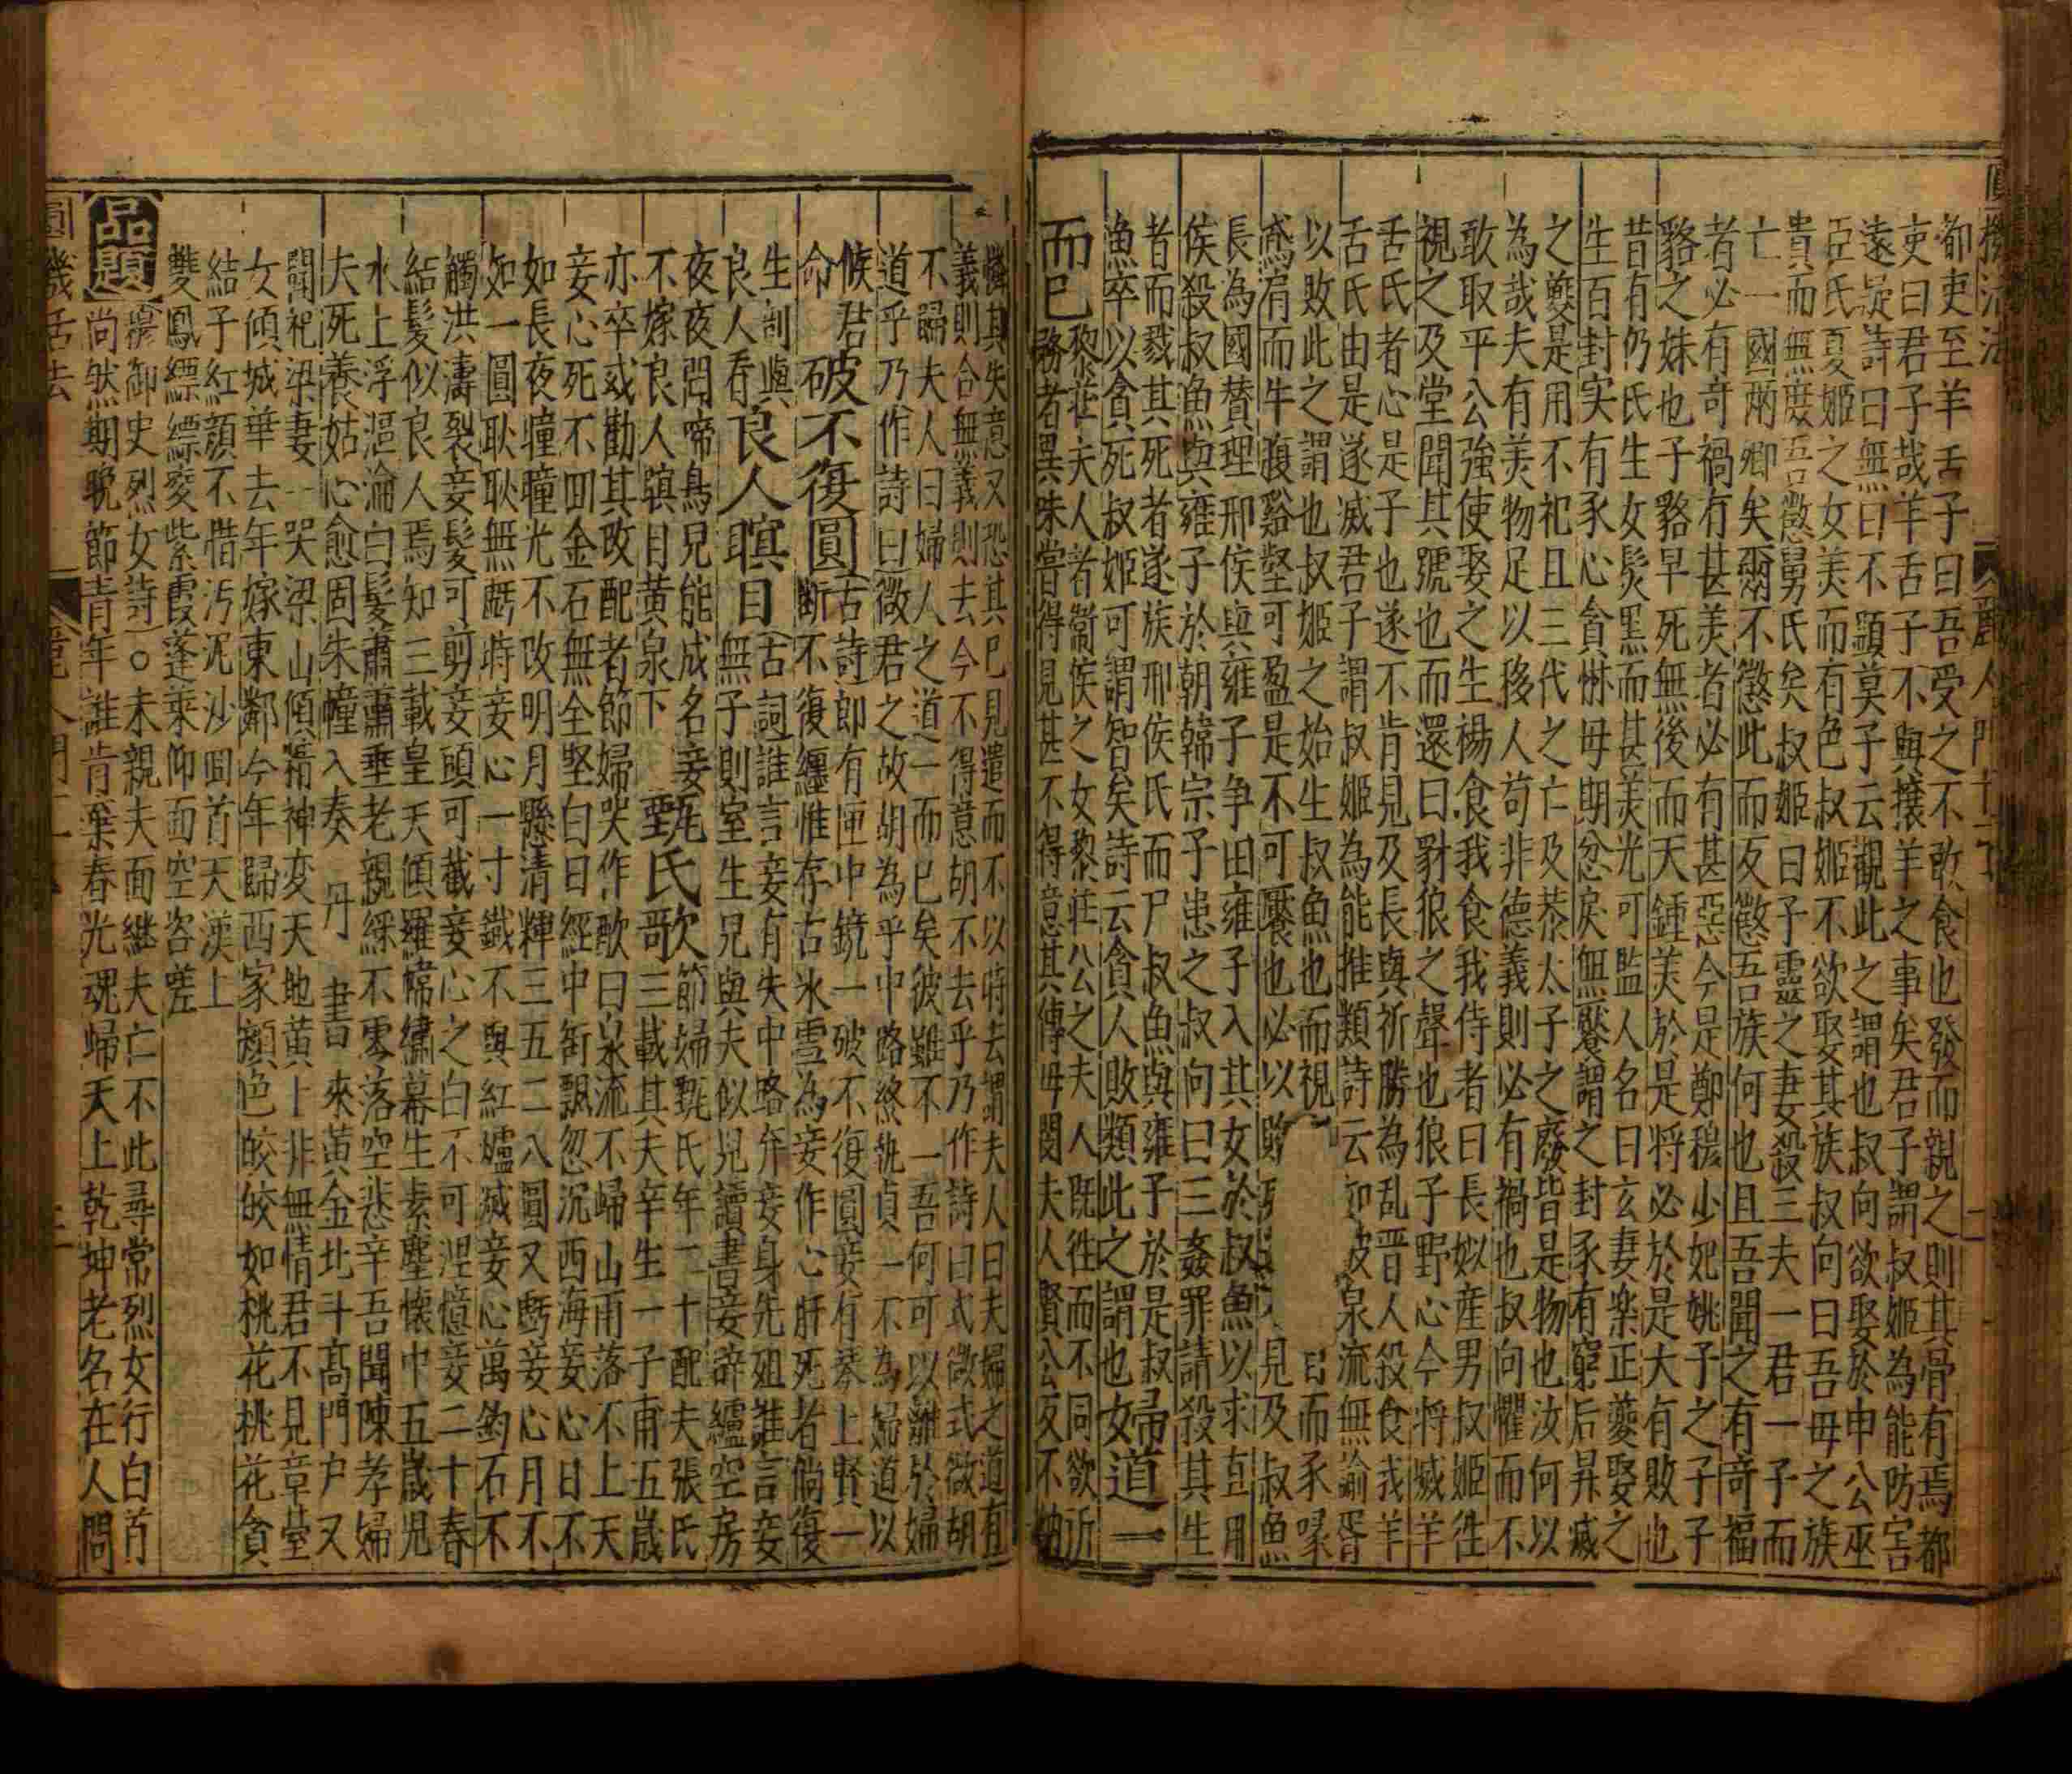 圓機活法 麗人門十一下 二
都吏至羊舌子曰吾受之不敢食也發而視之則其骨有焉都
吏曰君子哉羊舌子不與攘羊之事矣君子謂叔姬為能防害
遠疑詩曰無曰不顯莫予云觀此之謂也叔向欲娶於申公巫
臣氏夏姬之女美而有色叔姬不欲娶其族叔向曰吾母之族
貴而無庶吾懲舅氏矣叔姬曰子靈之妻殺三夫一君一子而
亡一國兩卿矣爾不懲此而反懲吾族何也且吾聞之有竒福
者必有奇禍有甚美者必有甚惡今是鄭穆少妃姚子之子子
貉之妹也子貉早死無後而天鍾美於是将必於是大有敗也
昔有仍氏生女髮黑而甚美光可監人名曰玄妻楽正夔娶之
生百封实有豕心貪惏毋期忿戾無饜謂之封豕有窮后昇滅
之夔是用不祀且三代之亡及恭太子之廢皆是物也汝何以
為哉夫有美物足以移人苟非德義則必有禍也叔向懼而不
敢取平公強使娶之生楊食我食我侍者曰長姒産男叔姬徃
視之及堂聞其號也而還曰豺狼之聲也狼子野心今将滅羊
舌氏者心是子也遂不肯見及長與祈勝為乱晋人殺食我羊
舌氏由是遂滅君子謂叔姬為能推類詩云如彼泉流無淪胥
以敗此之謂也叔姬之始生叔魚也而視 目而豕喙
鳶肩而牛腹谿壑可盈是不可饜也必以賂 見及叔魚
長為國賛理邢侯與雍子争田雍子入其女於叔魚以求直用
侯殺叔魚與雍子於朝韓宗子患之叔向曰三姦罪請殺其生
者而戮其死者遂族邢侯氏而尸叔魚與雍子於是叔
漁卒以貪死叔姬可謂智矣詩云貪人敗類此之謂也女
婦道一
而巳
黎莊夫人者衛侯之女黎莊公之夫人既徃而不同欲所
務者異味嘗得見甚不得意其傳母閔夫人賢公反不納
憐其失意又恐其已見遣而不以時去謂夫人曰夫婦之道有
義則合無義則去今不得意胡不去乎乃作詩曰式微式微胡
不歸夫人曰婦人之道一而已矣彼雖不一吾何可以離於婦
道乎乃作詩曰微君之故胡為乎中路終執貞一不為婦道以
候君命
破不復圓
古詩即有匣中鏡一破不復圓妾有琴上賢一
断不復纏惟存古氷雪為妾作心肝死者倘復
生剖與良人看
良人瞑目
古詞誰言妾有失中略弃妾身先殂誰言妾
無子則室生兄與夫似兒讀書妾辟纑空房
夜夜聞啼鳥兄能成名妾
不嫁良人瞑目黄泉下
甄氏歌
節婦甄氏年二十配夫張氏
三載其夫卒生一子甫五歲
亦卒或勸其改配者節婦哭作歌曰泉流不歸山雨落不上天
妾心死不回金石無全堅白日經中衙飄忽沉西海妾心日不
如長夜曈曈光不改明月懸清輝三五二八圓又虧妾心月不
如一圓耿耿無虧時妾心一寸鐵不與紅爐滅妾心萬鈞石不
觸洪濤裂妾髮可剪妾頭可截妾心之白不可涅憶妾二十春
結髮似良人焉知三載皇天傾羅幃繡幕生素塵懷中五歲児
水上浮漚淪白髮肅肅垂老親綵不零落空悲辛吾聞陳孝婦
夫死養姑心愈固朱幢入奏丹書來黄金北斗髙門户又
聞杞梁妻一哭梁山傾精神変天地黄上非無情君不見章臺
女傾城華去年嫁東鄰今年歸西家顔色皎皎如桃花桃花貪
結子紅顔不惜汚沉沙囬首天漢上
雙鳳縹縹変紫霞蓬萊仰面空咨嗟
品題
御史烈女詩○未親夫面継夫亡不此尋常烈女行白首
尚然期晚節青年誰肯棄春光魂歸天上乾坤老名在人間
圓機活法 麗人門